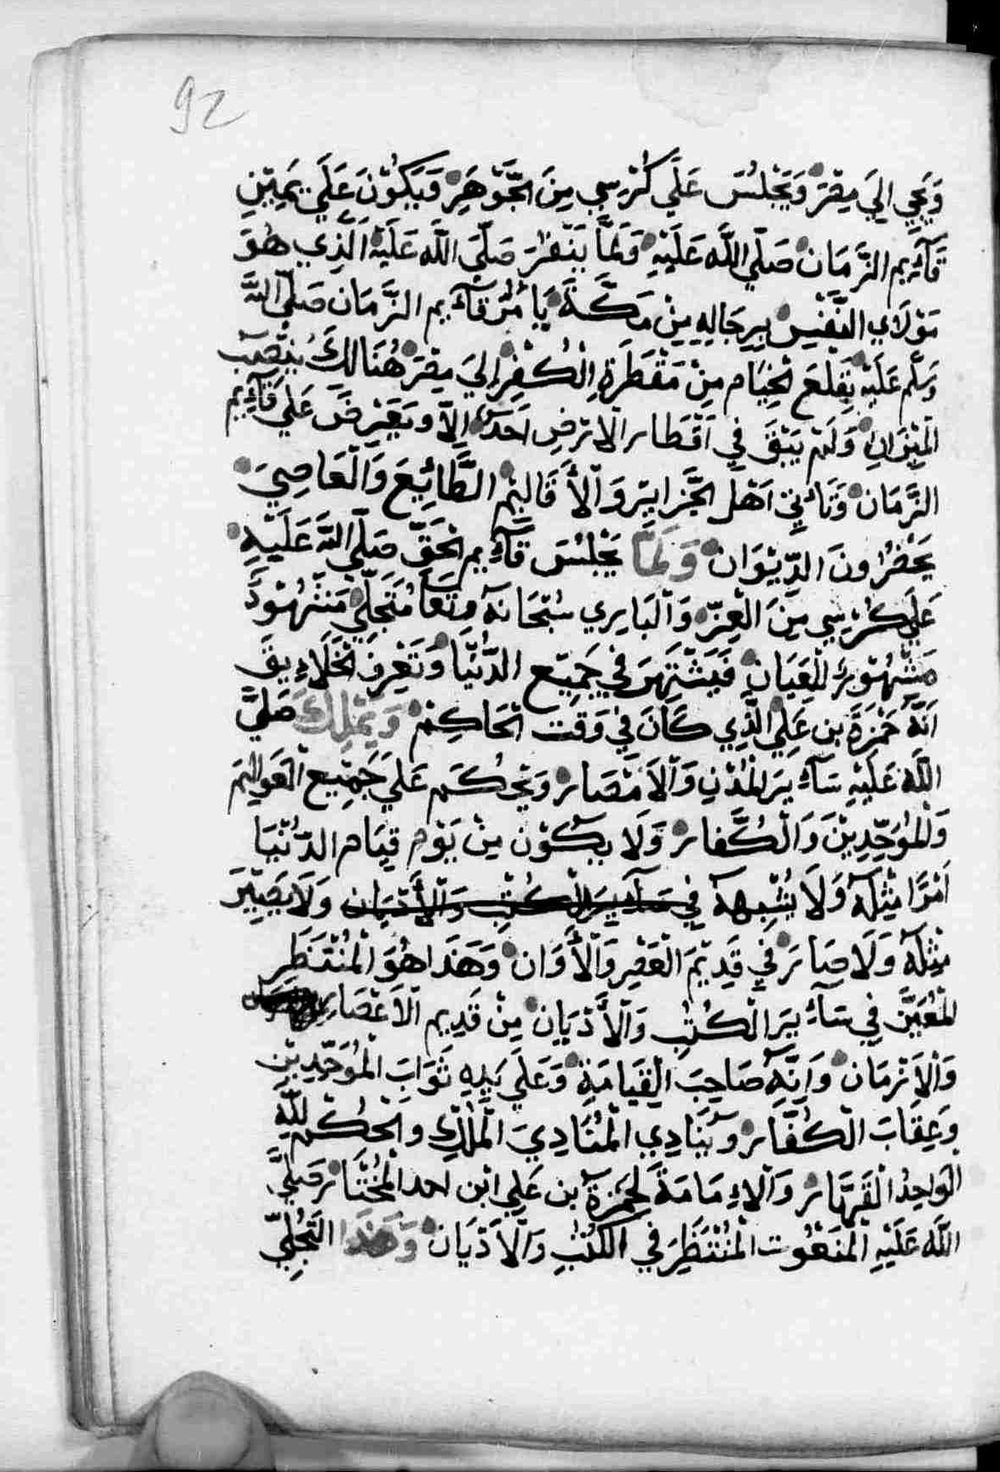 92
وَيَجِي اِلَي مِصْرَ وَيَجْلسُ عَلَي كُرْسِي مِنَ الجَّوْهَرِ وَيَكُوْنَ عَلَي يَمِيْنِ
قَآءِيم الزَّمَان صَلّي اللَّه عَلَيْهِ وَلَمَّا يَنْفر صَلّيَ اللَّه عَلَيْهِ الَّذِي هُوَ
مَوْلَاي النَّفْسِ بِرِجَالِهِ مِنْ مَكَّةَ يَأمُرُ قَآءِيم الزَّمَان صَلّي اللَّه
وَسَلّم عَلَيْهِ بِقَلْعَ الْخِيَام مِنْ مَقْطَرَةِ الْكُفْرِ اِلَي مِصْرَ هُنَالِكَ يُنْصَب
الْمِيْزَانِ وَلَمْ يَبْقَ فِي اَقْطَار الْاَرْضِ اَحَدًا اِلَّا وَيَعْرِضَ عَلَي قَآءِيم
الزَّمَان وَتَأتِي اَهْلَ الجَّزَايِرْ وَالْأَقَالِيْمْ الطَّائِعَ وَالْعَاصِيَ
يَحْضُرُونَ الدِّيْوَان وَلَمَّا يَجْلسُ قَآءِيم الْحَقِّ صَلّي اللَّه عَلَيْهِ
عَلَي كُرْسِي مِنَ الْعِزّ وَالْبَارِي سُبْحَانَهُ وَتَعَا مُتَجَلّي مَشْهُوْدً
مَشْهُوْرً لِلْعَيَان فَيَشْتَهِرَ فِي جَمِيْع الدُّنْيَا وَتَعْرِفَ الْخَلَاءِيقَ
اَنَّهُ حَمْزَةَ بن عَلِي الَّذِي كَانَ فِي وَقْت الْحَاكِمْ وَيَمْلِكَ صَلَّي
اللَّه عَلَيْهِ سَآءِيرَ الْمُدْنِ وَالْاَمْصَارْ وَيَحْكُم عَلَي جَمِيْع الْعَوَالِم
وَالْمُوَحِّدِيْنَ وَالْكُفَّارْ وَلَا يَكُوْن مِنْ يَوْم قِيَام الدّنْيَا
اَمْرًا مِثْلَهُ وَلَا يُشْبِهَهُ فِي سَآءِيرَ الْكُتُبْ وَالْأَدْيَان وَلَا يَصِيْرَ
مِثْلَهُ وَلَا صَارَ فِي قَدِيْمَ الْعَصْرِ وَالْأَوَان وَهَذَا هُوَ الْمُنْتَظَرِ
الْمُعَيَّن فِي سَآءِيرَ الْكُتُبِ وَالْأَدْيَان مِنْ قَدِيم الْاَعْصَارِ
وَالْاَزْمَان وَاِنَّهُ صَاحِبَ الْقِيَامَةِ وَعَلَي يَدِهِ ثَوَابَ الْمُوَحِّدِيْن
وَعِقَابَ الْكُفَّارْ وَيُنَادِي الْمُنَادِيَ الْمُلْكِ والْحُكْم لِلَّهِ
الْوَاحِدُ الْقَهَّارْ وَالْاِمَامَةَ لِحَمْزَةَ بن عَلِي ابْن احمد الْمُخْتَارْ صَلَّي
اللَّه عَلَيْهِ الْمَنْعُوْت الْمُنْتَظَرِ فِي الْكُتْبِ وَالْاَدْيَان وَهَذَا التَّجُلِّي